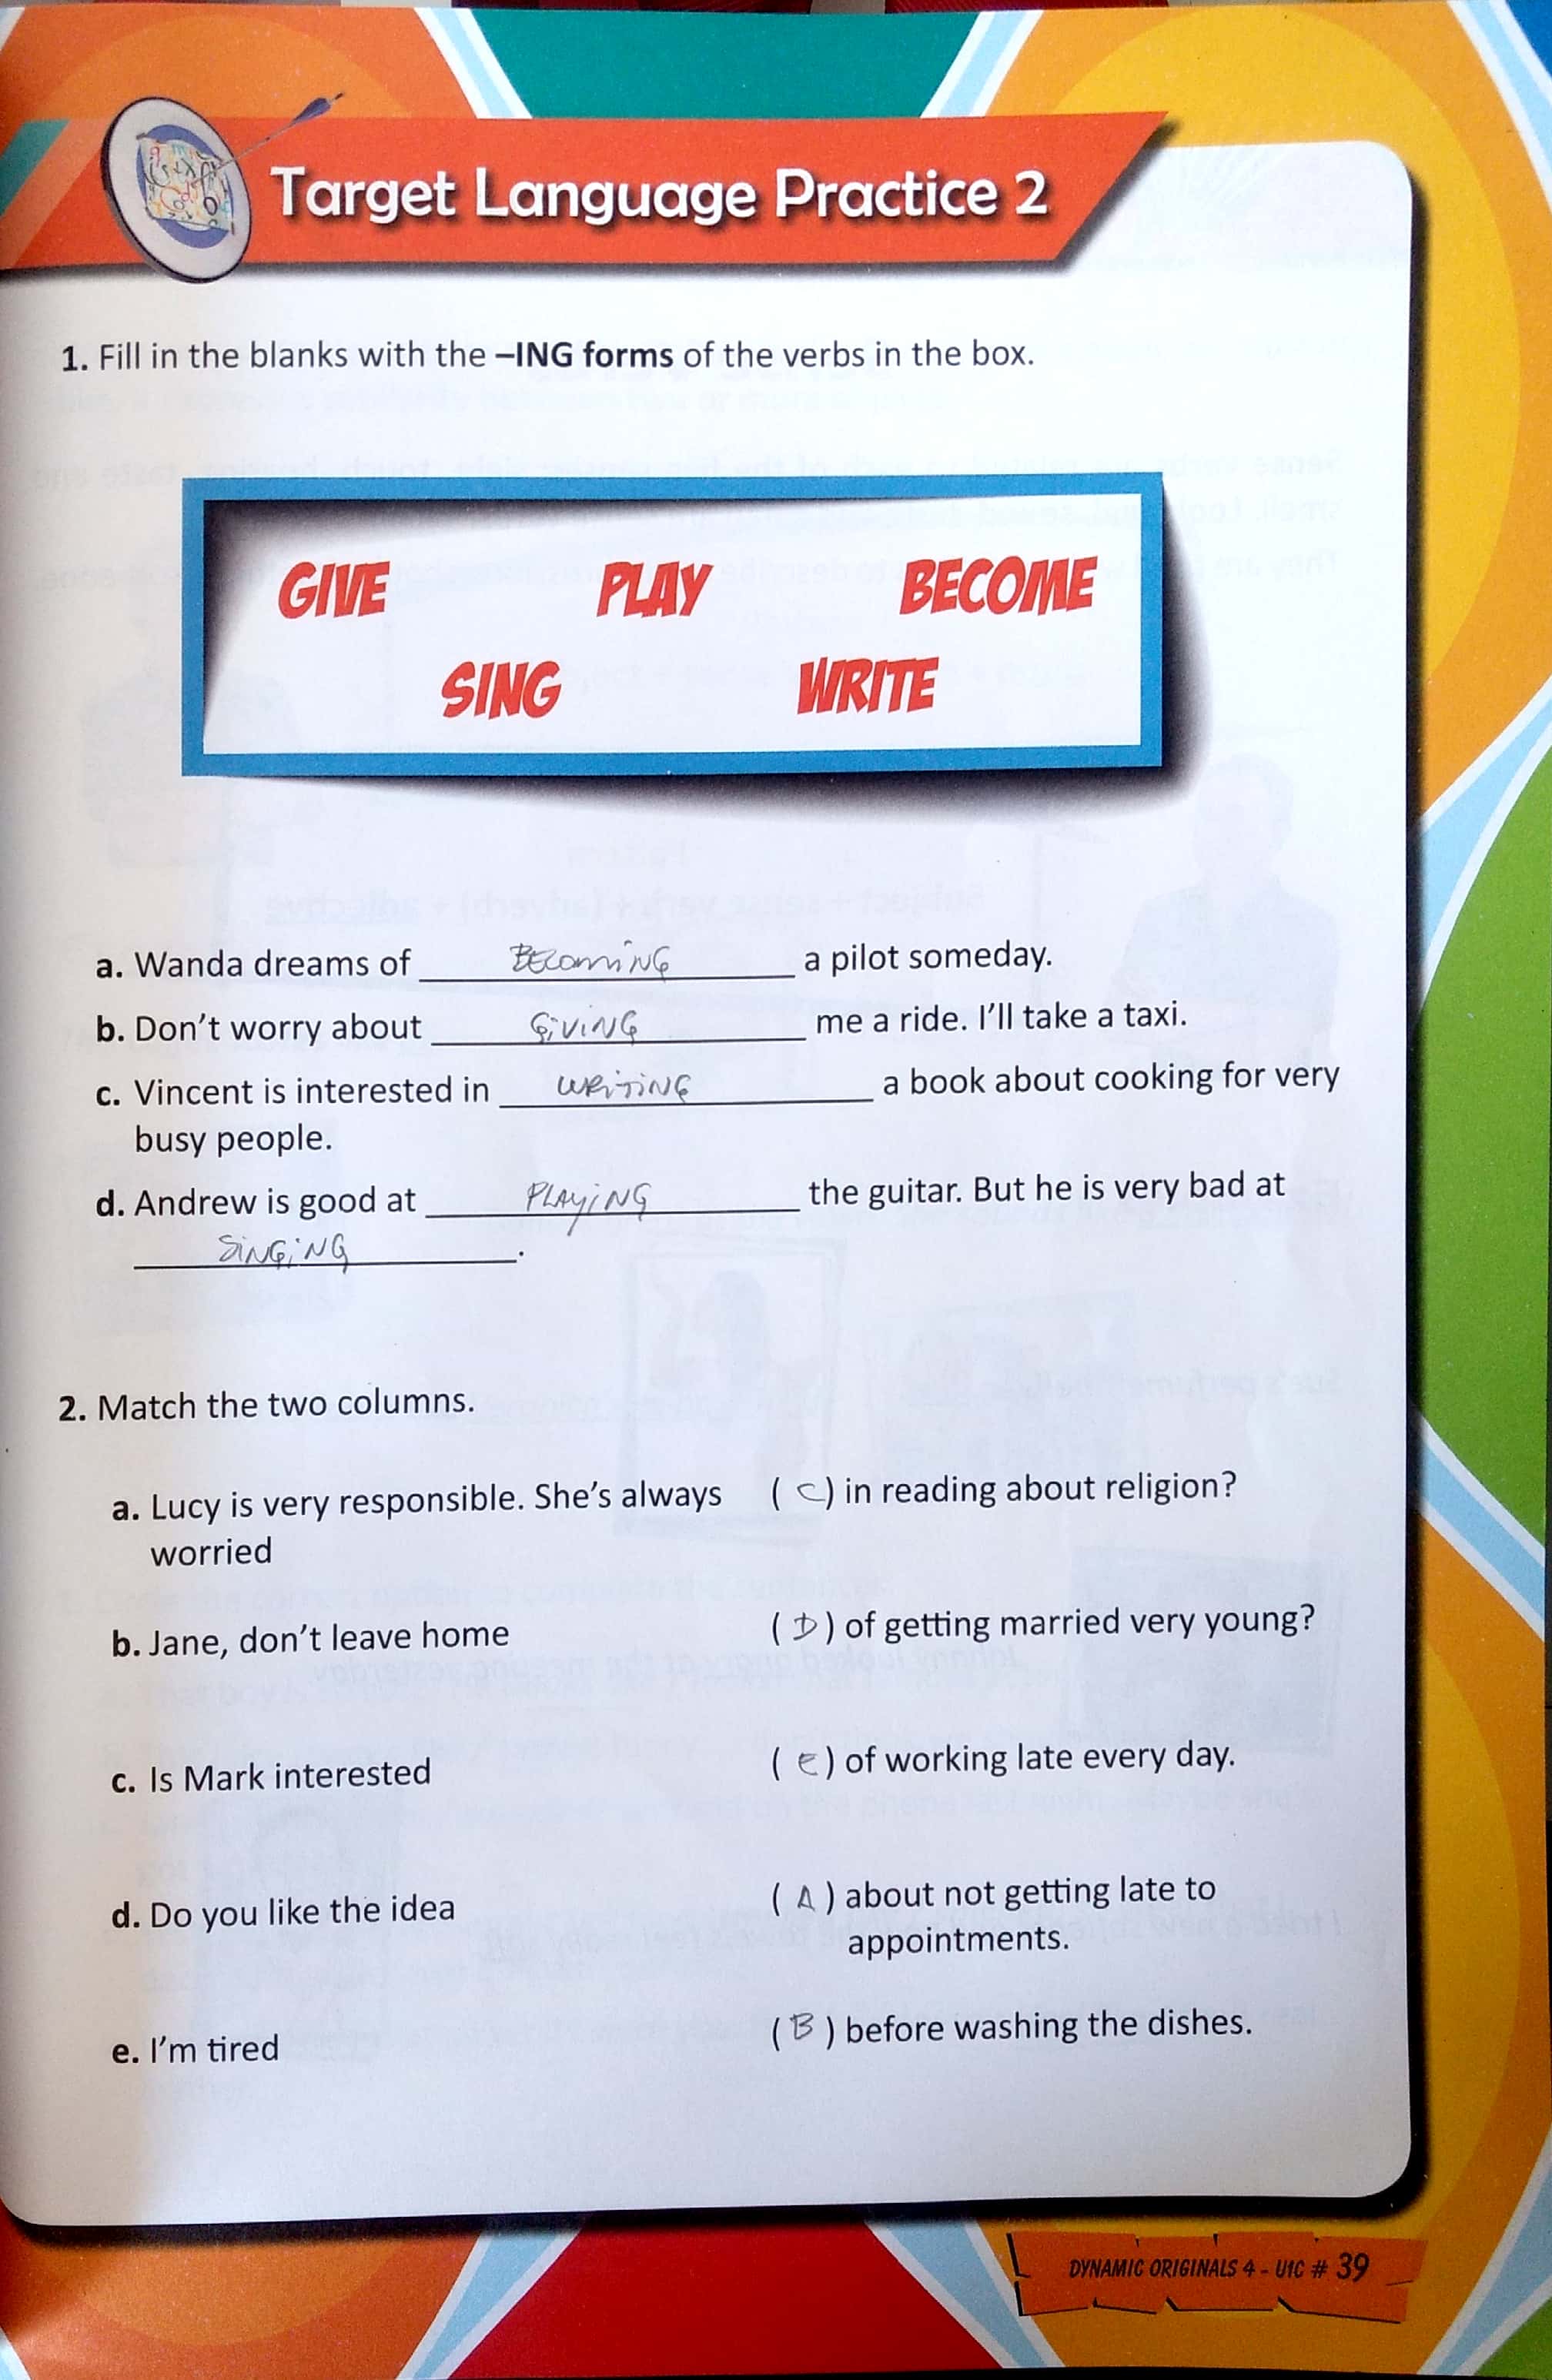 Target Language Practice 2
1. Fill in the blanks with the –ING forms of the verbs in the box.
GIVE PLAY BECOME
SING WRITE
a. Wanda dreams of BECOMING a pilot someday.
b. Don't worry about GiViNG me a ride. I'll take a taxi.
c. Vincent is interested in WRiTiNG a book about cooking for very
busy people.
d. Andrew is good at PLAyiNG the guitar. But he is very bad at
SiNGiNG.
2. Match the two columns.
a. Lucy is very responsible. She's always
worried
( C ) in reading about religion?
b. Jane, don't leave home
( D ) of getting married very young?
c. Is Mark interested
( E ) of working late every day.
d. Do you like the idea
( A ) about not getting late to
appointments.
e. I'm tired
( B ) before washing the dishes.
DYNAMIC ORIGINALS 4 - U1C # 39